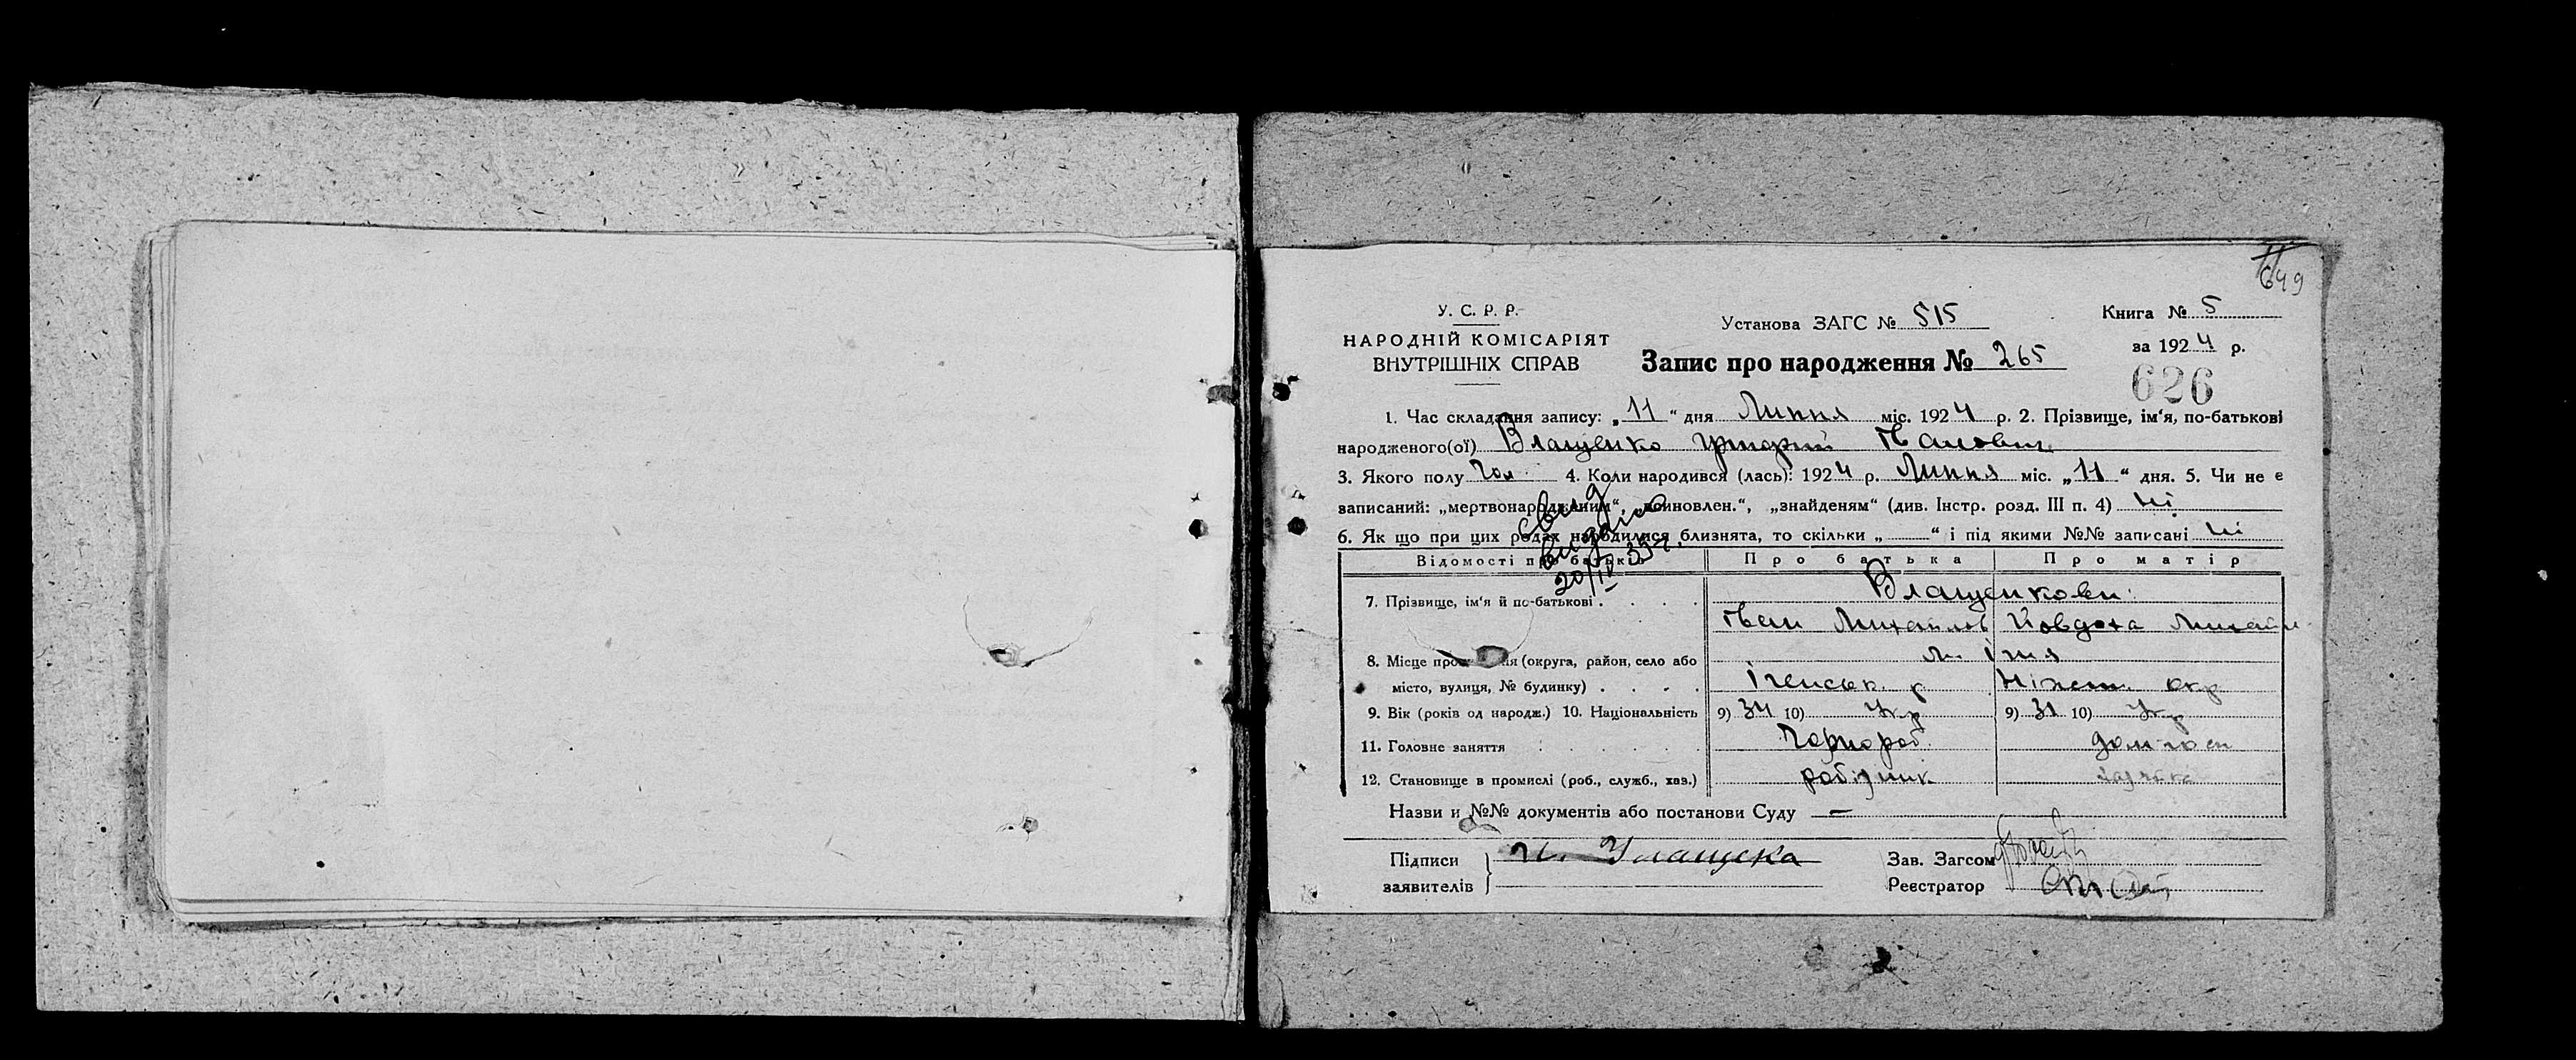 649
У. С. Р. Р.
НАРОДНІЙ КОМІСАРІЯТ
ВНУТРІШНІХ СПРАВ
Установа ЗАГС № 515
Запис про народження № 265
Книга № 5
за 1924 р.
626
1. Час складання запису: „11“ дня Липня міс. 1924 р. 2. Прізвище, ім‘я, по-батькові
народженого(ої) Влащенко Григорій Іванович
3. Якого полу чол 4. Коли народився (лась): 1924 р. Липня міс. „11“ дня. 5. Чи не є
записаний: „мертвонародженим“, „воиновлен.“, „знайденям“ (див. Інстр. розд. III п. 4) ні
6. Як що при цих родах народилися близнята, то скільки „ “ і під якими №№ записані ні
свид
видано
20/IV 35 г.
Відомості про батьків Про батька Про матір
7. Прізвище, ім‘я й по-батькові . . . . Влащенкови
Іван Михайлов Йовдоха Михайл
8. Місце про ня (округа, район, село або м. Ічня
місто, вулиця, № будинку) . . . . Іченськ. р Ніжен. окр
9. Вік (років од народж.) 10. Національність 9) 34 10) Укр 9) 31 10) Укр
11. Головне заняття Чорнороб. дом-госп
12. Становище в промислі (роб., служб., хаз.) робітник
Назви и №№ документів або постанови Суду —
Підписи
заявителів
Зав. Загсом
Реєстратор